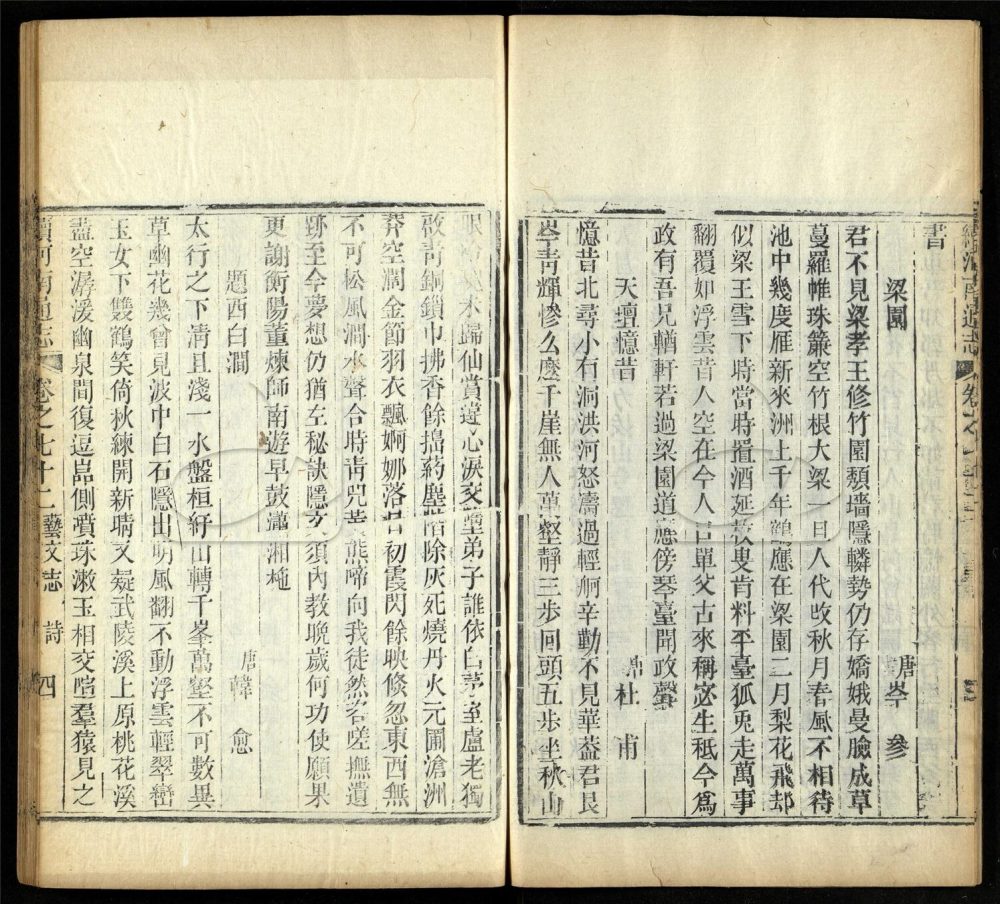 續河南通志 卷之七十二
書
梁園 唐岑參
君不見梁孝王修竹園頽墻隱轔勢仍存嬌娥曼臉成草
蔓羅帷珠簾空竹根大梁一旦人代改秋月春風不相待
池中幾度雁新來洲上千年鶴應在梁園二月梨花飛却
似梁王雪下時當時置酒延枚叟肯料平臺狐兎走萬事
翻覆如浮雲昔人空在今人口單父古來稱宓生秪今為
政有吾兄輶軒若過梁園道應傍琴臺聞政聲
天壇憶昔 杜甫
憶昔北尋小石洞洪河怒濤過輕舸辛勤不見華葢君艮
岑青輝慘么麽千崖無人萬壑靜三步回頭五步坐秋山
眼 歸仙賞違心淚交墮弟子誰依白茅室盧老獨
啟青銅鎖巾拂香餘搗藥塵階除灰死燒丹火元圃滄洲
莽空濶金節羽衣飄婀娜落日初霞閃餘映倐忽東西無
不可松風澗水聲合時青兕黃熊啼向我徒然咨嗟撫遺
跡至今夢想仍猶左秘訣隱文須內教晚歲何功使願果
更謝衡陽董煉師南遊早鼓瀟湘柂
題西白澗 唐韓愈
太行之下清且淺一水盤桓紆山轉千峯萬壑不可數異
草幽花幾曾見波中白石隱出明風翻不動浮雲輕翠巒
玉女下雙鶴笑倚秋練開新晴又疑武陵溪上原桃花溪
盡空潺湲幽泉間復逗嵓側濆珠漱玉相交喧羣猿見之
續河南通志 卷之七十二 藝文志 詩 四